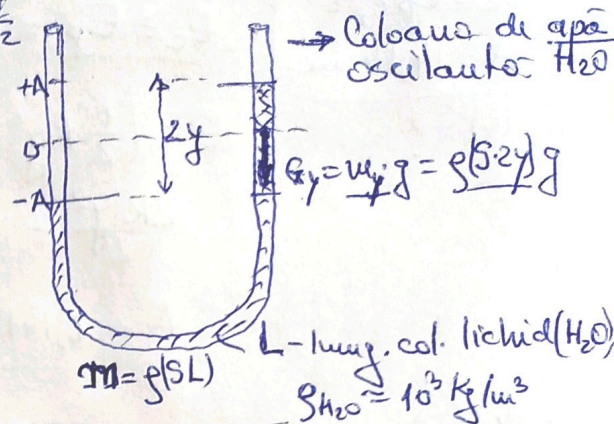 2
→ Coloana de apă
oscilantă H₂O
+A
O
2y
-A
G_y = m_y·g = ρ(S·2y)g
L - lung. col. lichid (H₂O)
m = ρ(SL)
ρ_H₂O = 10³ kg/m³